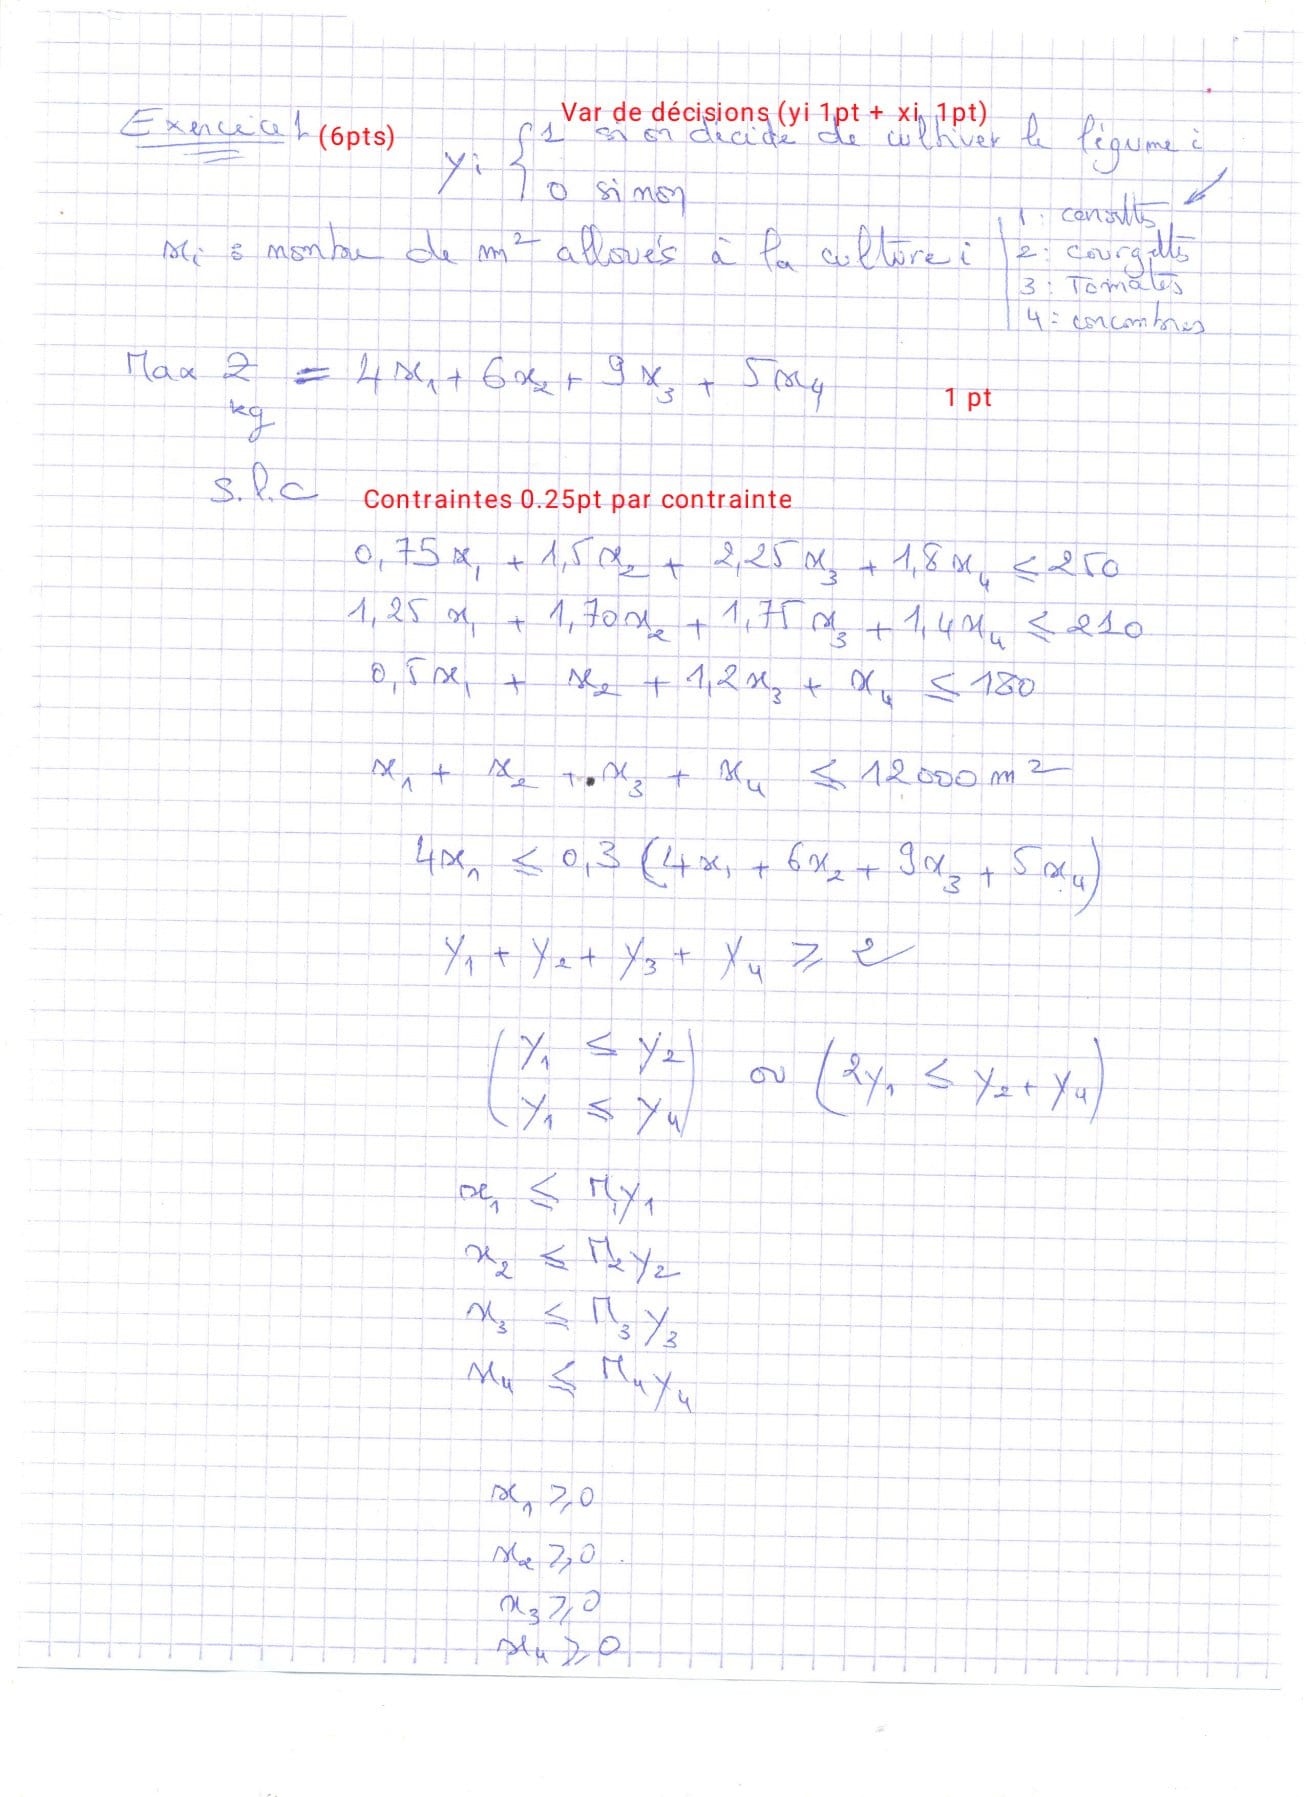 Exercice 1 (6pts)
Var de décisions (yi 1pt + xi 1pt)
yi { 1 si on décide de cultiver le légume i
0 sinon
xi : nombre de m² alloués à la culture i
1 : carottes
2 : courgettes
3 : Tomates
4 : concombres
Max Z = 4x₁ + 6x₂ + 9x₃ + 5x₄
kg
1 pt
s.l.c
Contraintes 0.25pt par contrainte
0,75x₁ + 1,5x₂ + 2,25x₃ + 1,8x₄ ≤ 250
1,25x₁ + 1,70x₂ + 1,75x₃ + 1,4x₄ ≤ 210
0,5x₁ + x₂ + 1,2x₃ + x₄ ≤ 180
x₁ + x₂ + x₃ + x₄ ≤ 12000 m²
4x₁ ≤ 0,3 (4x₁ + 6x₂ + 9x₃ + 5x₄)
y₁ + y₂ + y₃ + y₄ ≥ 2
(y₁ ≤ y₂
y₁ ≤ y₄) ou (2y₁ ≤ y₂ + y₄)
x₁ ≤ M₁y₁
x₂ ≤ M₂y₂
x₃ ≤ M₃y₃
x₄ ≤ M₄y₄
x₁ ≥ 0
x₂ ≥ 0
x₃ ≥ 0
x₄ ≥ 0